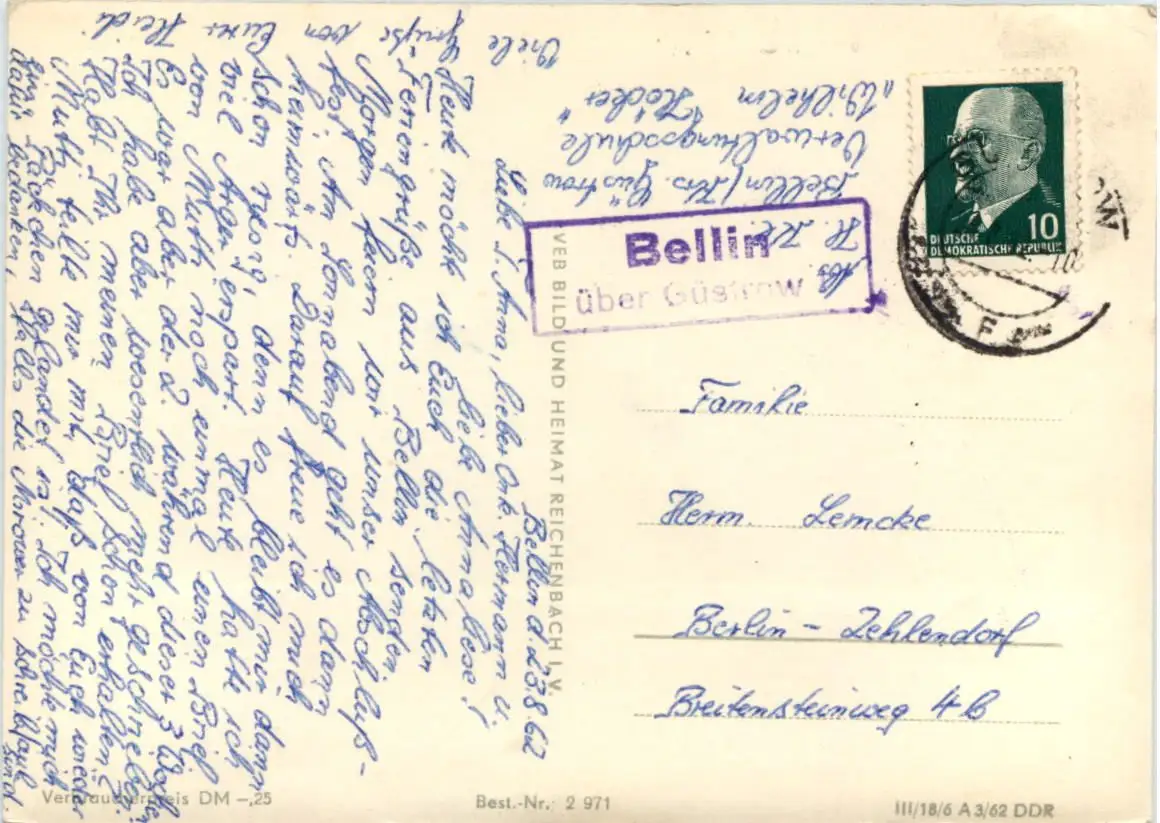 Bellin d. 23.8.62
Liebe T. Anna, lieber Onk. Hermann u.
liebe Annaliese!
Heute möchte ich Euch die letzten
Feriengrüße aus Bellin senden.
Morgen feiern wir unser Abschluß-
fest. Am Sonnabend geht es dann
heimwärts. Darauf freue ich mich
schon riesig, denn es bleibt mir dann
viel Ärger erspart. Heute hatte ich
von Mutti noch einmal einen Brief.
Es war aber der 2. während dieser 3 Wochen.
Ich habe aber wesentlich mehr geschrieben.
Habt Ihr meinen Brief schon erhalten?
Mutti teilte mir mit, daß von Euch wieder
ein Päckchen gelandet ist. Ich möchte mich
dafür bedanken, falls die zu schreibfaul
sind.
Viele Grüße von Eurer Heidi
Abs. H.
Bellin / Krs. Güstrow
Verwaltungsschule
„Wilhelm Höcker"
10
DEUTSCHE
DEMOKRATISCHE REPUBLIK
Bellin
über Güstrow
F
VEB BILD UND HEIMAT REICHENBACH I. V.
Familie
Herm. Lemcke
Berlin - Zehlendorf
Breitensteinweg 4b
Verbraucherpreis DM -,25
Best.-Nr.: 2 971
III/18/6 A 3/62 DDR